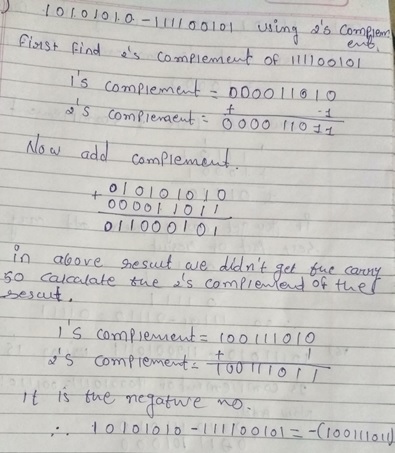 ) 10101010-111100101 using 2's complem
ent.
First find 2's complement of 111100101
1's complement = 000011010
+ 1
2's complement = 000011011
Now add complement.
+ 010101010
000011011
011000101
in above result we didn't get the carry
so calculate the 2's complement of the
result.
1's complement = 100111010
+ 1
2's complement = 100111011
It is the negative no.
∴ 10101010-111100101 = -(100111011)